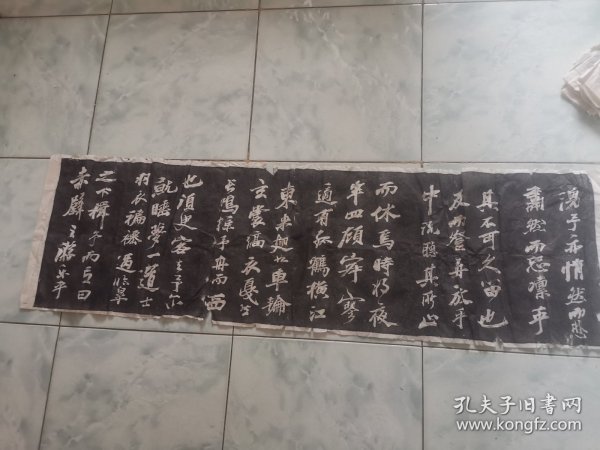 湧予亦悄然而悲
肅然而恐凜乎
其不可久留也
反而登舟放乎
中流聽其所止
而休焉時將夜
半四顧寂寥
適有孤鶴橫江
東來翅如車輪
玄裳縞衣戛然
長鳴掠予舟而西
也須臾客去予亦
就睡夢一道士
羽衣蹁躚過臨皋
之下揖予而言曰
赤壁之遊樂乎
孔夫子旧书网
www.kongfz.com